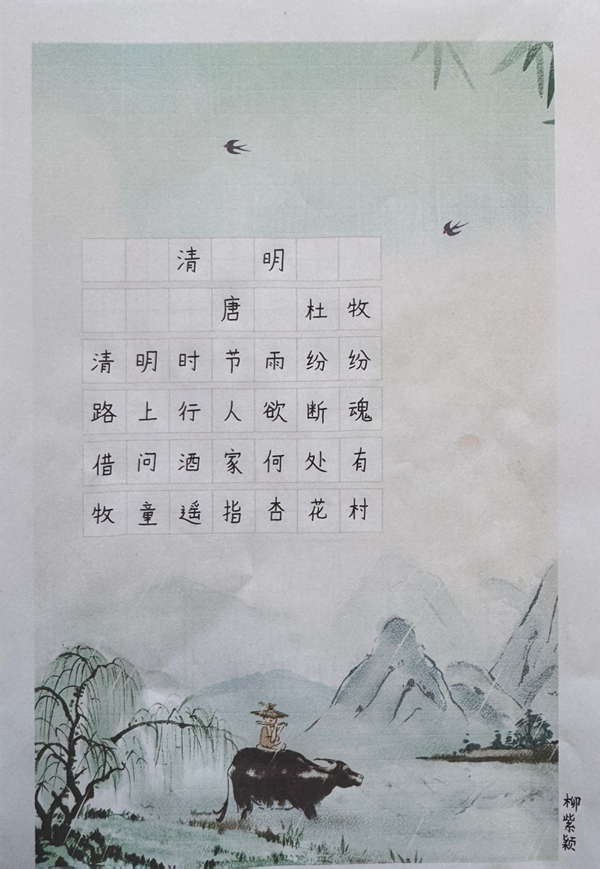 清明
唐 杜牧
清明时节雨纷纷
路上行人欲断魂
借问酒家何处有
牧童遥指杏花村
柳紫颖